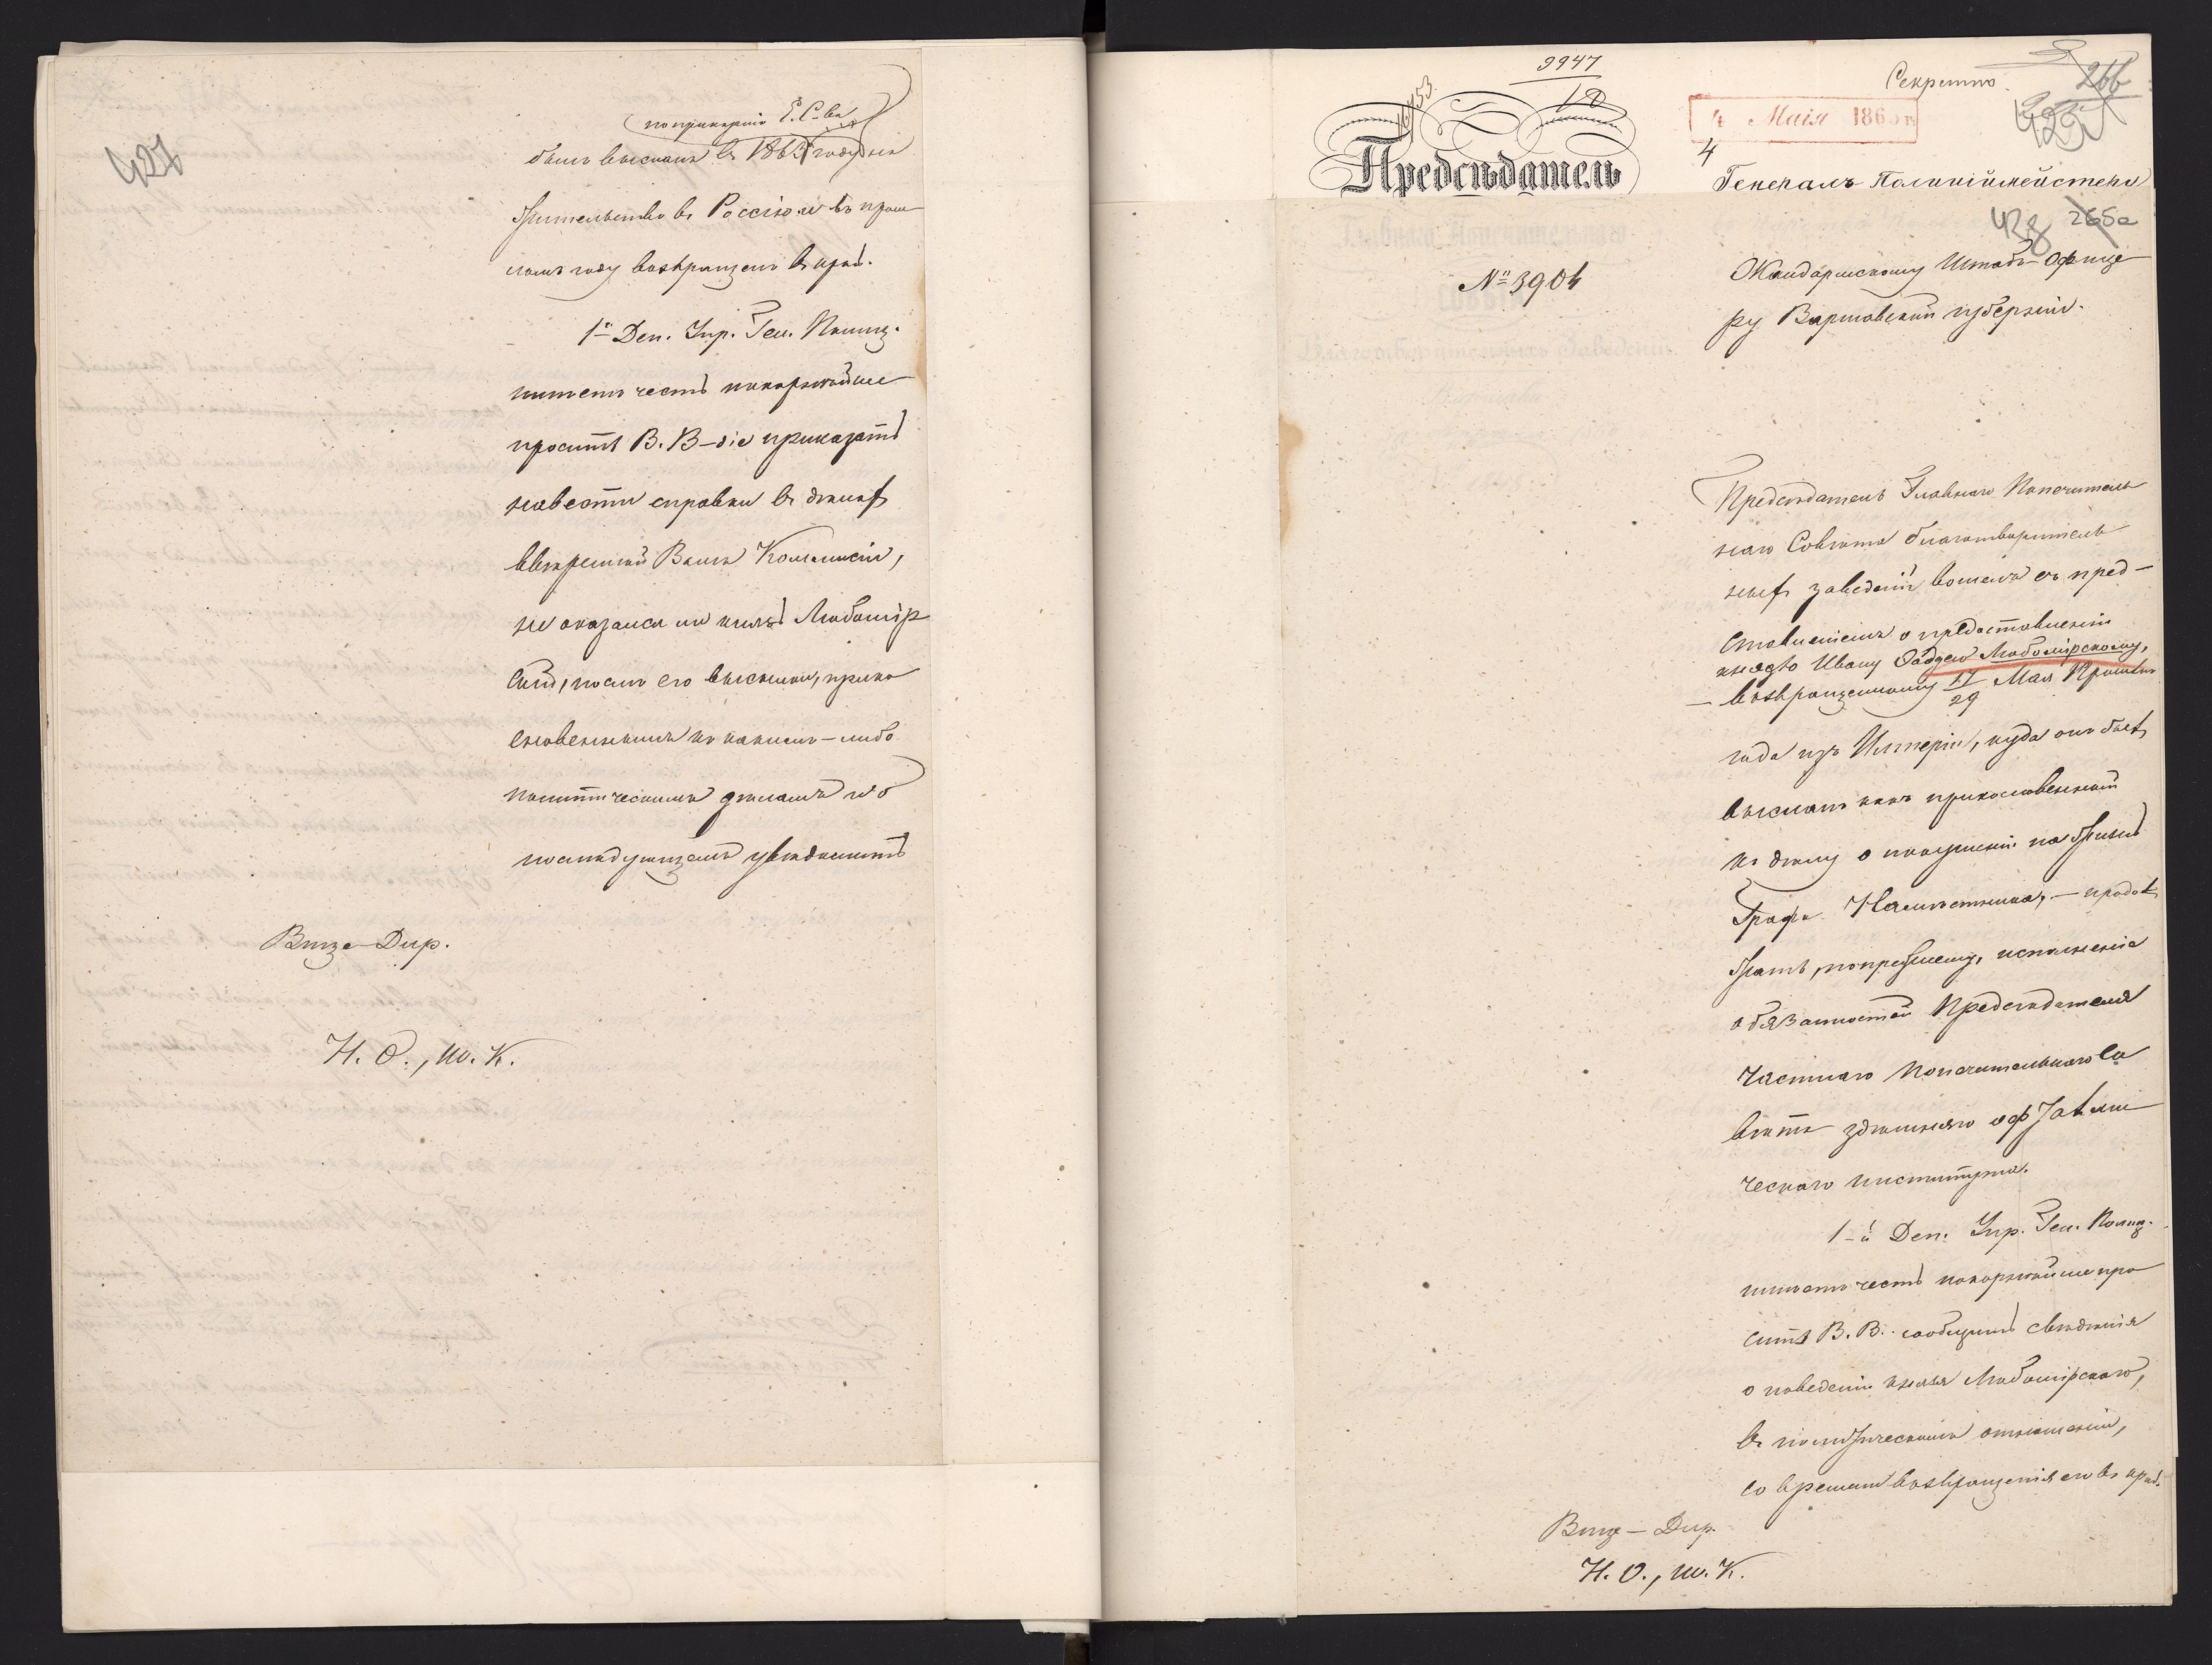 427
по приказанію Е. С-ва
былъ высланъ въ 1863 году на
жительство въ Россію и въ прош
ломъ году возвращенъ въ край.
1й Деп. Упр. Ген. Полиц.
имѣетъ честь покорнѣйше
проситъ В. В-діе приказать
навести справки въ дѣлахъ
ввѣренной Вамъ Коммисіи,
не оказался ли князь Любомір
скій, послѣ его высылки, прико
сновеннымъ къ какимъ-либо
политическимъ дѣламъ и о
послѣдующемъ увѣдомить
Вице-Дир.
Н. О., Ш. К.
9947
Секретно.
266
4 Маія 186 г.
4
Предсѣдатель
Генералъ Полиціймейстера
428 265а
№ 3904
Жандармскому Штабъ-Офице
ру Варшавской губерніи.
Предсѣдатель Главнаго Попечитель
наго Совѣта благотворитель
ныхъ заведеній вошелъ съ пред-
ставленіемъ о предоставленіи
князю Ивану Фаддею Любомірскому,
возвращенному 17/29 Мая прошлаго
года изъ Имперіи, куда онъ былъ
высланъ какъ прикосновенный
къ дѣлу о покушеніи на жизнь
Графа Намѣстника, — продол
жать, попрежнему, исполненіе
обязанностей Предсѣдателя
Частнаго Попечительнаго Со
вѣта здѣшняго офтальми
ческаго института.
1-й Деп. Упр. Ген. Полиц.
имѣетъ честь покорнѣйше про
сить В. В. сообщить свѣдѣнія
о поведеніи князя Любомірскаго,
въ политическомъ отношеніи,
со времени возвращенія его въ край.
Вице-Дир.
Н. О., Ш. К.